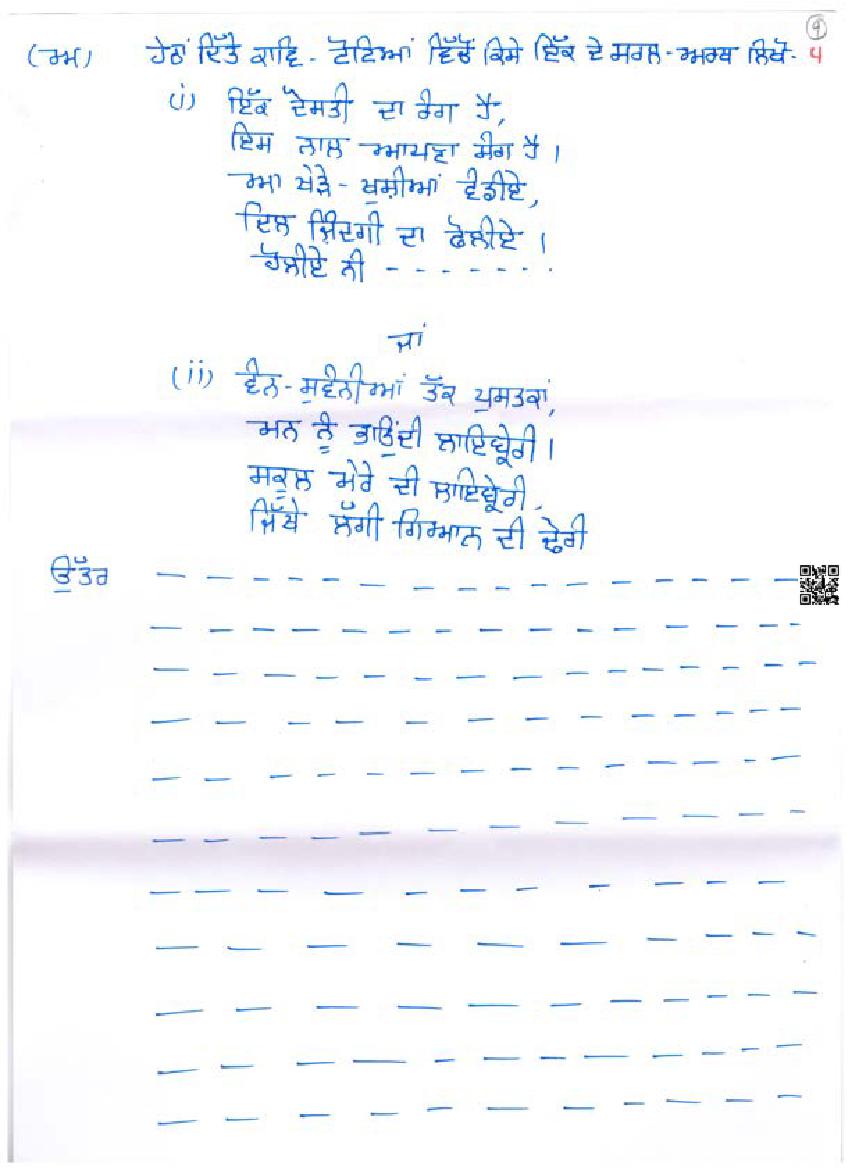 9
(ਅ) ਹੇਠਾਂ ਦਿੱਤੇ ਕਾਵਿ-ਟੋਟਿਆਂ ਵਿੱਚੋਂ ਕਿਸੇ ਇੱਕ ਦੇ ਸਰਲ-ਅਰਥ ਲਿਖੋ- 4
(i) ਇੱਕ ਦੋਸਤੀ ਦਾ ਰੰਗ ਹੈ,
ਇਸ ਨਾਲ ਆਪਣਾ ਸੰਗ ਹੈ।
ਆ ਖੇੜੇ-ਖੁਸ਼ੀਆਂ ਵੰਡੀਏ,
ਦਿਲ ਜ਼ਿੰਦਗੀ ਦਾ ਫੋਲੀਏ।
ਹੋਲੀਏ ਨੀ - - - - - - - .
ਜਾਂ
(ii) ਵੰਨ-ਸੁਵੰਨੀਆਂ ਤੱਕ ਪੁਸਤਕਾਂ,
ਮਨ ਨੂੰ ਭਾਉਂਦੀ ਲਾਇਬ੍ਰੇਰੀ।
ਸਕੂਲ ਮੇਰੇ ਦੀ ਲਾਇਬ੍ਰੇਰੀ,
ਜਿੱਥੇ ਲੱਗੀ ਗਿਆਨ ਦੀ ਢੇਰੀ
ਉੱਤਰ